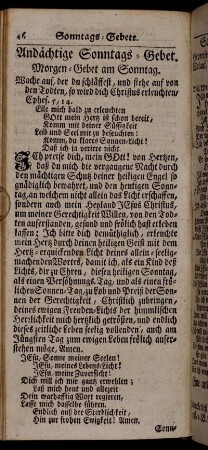 46 Sonntags-Gebete.
Andächtige Sonntags-Gebet.
Morgen-Gebet am Sonntag.
Wache auf, der du schläffest, und stehe auf von
den Todten, so wird dich Christus erleuchten/
Ephes. 5, 14.
Eile mich bald zu erleuchten
GOtt mein Hertz ist schon bereit,
Komm mit deiner Süssigkeit
Leib und Seel mir zu befeuchten:
Komm, du klares Sonnen-Licht!
Daß ich ja verirre nicht.
ICh preise dich, mein GOtt! von Hertzen,
daß du mich die vergangene Nacht durch
den mächtigen Schutz deiner heiligen Engel so
gnädiglich bewahret, und den heutigen Sonn-
tag, an welchen nicht allein das Licht erschaffen,
sondern auch mein Heyland JEsus Christus,
um meiner Gerechtigkeit Willen, von den Tod-
ten auferstanden, gesund und frölich hast erleben
lassen; Ich bitte dich demüthiglich, erleuchte
mein Hertz durch deinen heiligen Geist mit dem
Hertz-erquickenden Licht deines allein-seelig-
machenden Wortes, damit ich, als ein Kind deß
Lichts, dir zu Ehren, diesen heiligen Sonntag,
als einen Versöhnungs-Tag, und als einen frö-
lichen Sonnen-Tag, zu Lob und Preiß der Son-
nen der Gerechtigkeit, Christlich zubringen,
deines ewigen Freuden-Lichts der himmlischen
Herrlichkeit mich hertzlich getrösten, und endlich
dieses zeitliche Leben seelig vollenden, auch am
Jüngsten Tag zum ewigen Leben frölich aufer-
stehen möge, Amen.
JEsu, Sonne meiner Seelen!
JEsu, meines Lebens-Licht!
JEsu, meine Zuversicht!
Dich will ich mir gantz erwehlen;
Laß mich heut und allezeit
Dein warhafftig Wort regieren,
Lasse mich dasselbe führen,
Endlich aus der Sterblichkeit,
Hin zur frohen Ewigkeit! Amen.